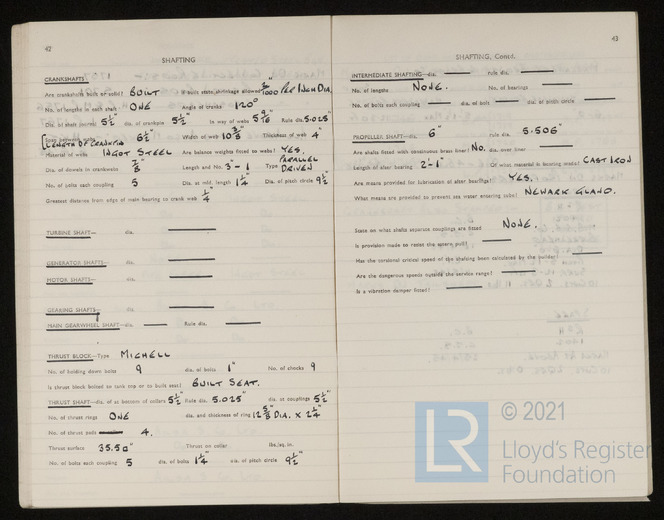 42
SHAFTING
CRANKSHAFTS
Are crankshafts built or solid? BUILT If built state shrinkage allowed 2/1000" PER INCH DIA.
No. of lengths in each shaft ONE Angle of cranks 120°
Dia. of shaft journal 5½" dia. of crankpin 5½" In way of webs 5 9/16" Rule dia. 5.025"
between webs 6½" Width of web Thickness of web 4"
[LENGTH OF CRANKPIN
Material of webs INGOT STEEL Are balance weights fitted to webs? YES.
Dia. of dowels in crankwebs 7/8" Length and No. 3"-1 Type PARALLEL DRIVEN
No. of bolts each coupling 5 Dia. at mid. length 1¼" Dia. of pitch circle 9½"
Greatest distance from edge of main bearing to crank web ¼"
TURBINE SHAFT— dia.
GENERATOR SHAFTS—
MOTOR SHAFTS— dia.
GEARING SHAFTS— dia.
MAIN GEARWHEEL SHAFT—dia. Rule dia.
THRUST BLOCK—Type MICHELL
No. of holding down bolts 9 dia. of bolts 1" No. of chocks 9
Is thrust block bolted to tank top or to built seat? BUILT SEAT.
THRUST SHAFT—dia. of at bottom of collars 5½" Rule dia. 5.025" dia. at couplings 5½"
No. of thrust rings ONE dia. and thickness of ring 12 5/8" DIA. X 2¼"
No. of thrust pads 4.
Thrust surface 35.5 □" Thrust on collar lbs./sq. in.
No. of bolts each coupling 5 dia. of bolts 1¼" dia. of pitch circle 9½"
43
SHAFTING, Contd.
INTERMEDIATE SHAFTING—dia. rule dia.
No. of lengths NONE. No. of bearings
No. of bolts each coupling dia. of bolt dia. of pitch circle
PROPELLER SHAFT—dia. 6" rule dia. 5.506"
Are shafts fitted with continuous brass liner? NO. dia. over liner
Length of after bearing 2'-1" Of what material is bearing made? CAST IRON
Are means provided for lubrication of after bearings? YES.
What means are provided to prevent sea water entering tube? NEWARK GLAND.
State on what shafts separate couplings are fitted NONE.
Is provision made to resist the astern pull?
Has the torsional critical speed of the shafting been calculated by the builder?
Are the dangerous speeds outside the service range?
Is a vibration damper fitted?
LR
© 2021
Lloyd's Register
Foundation